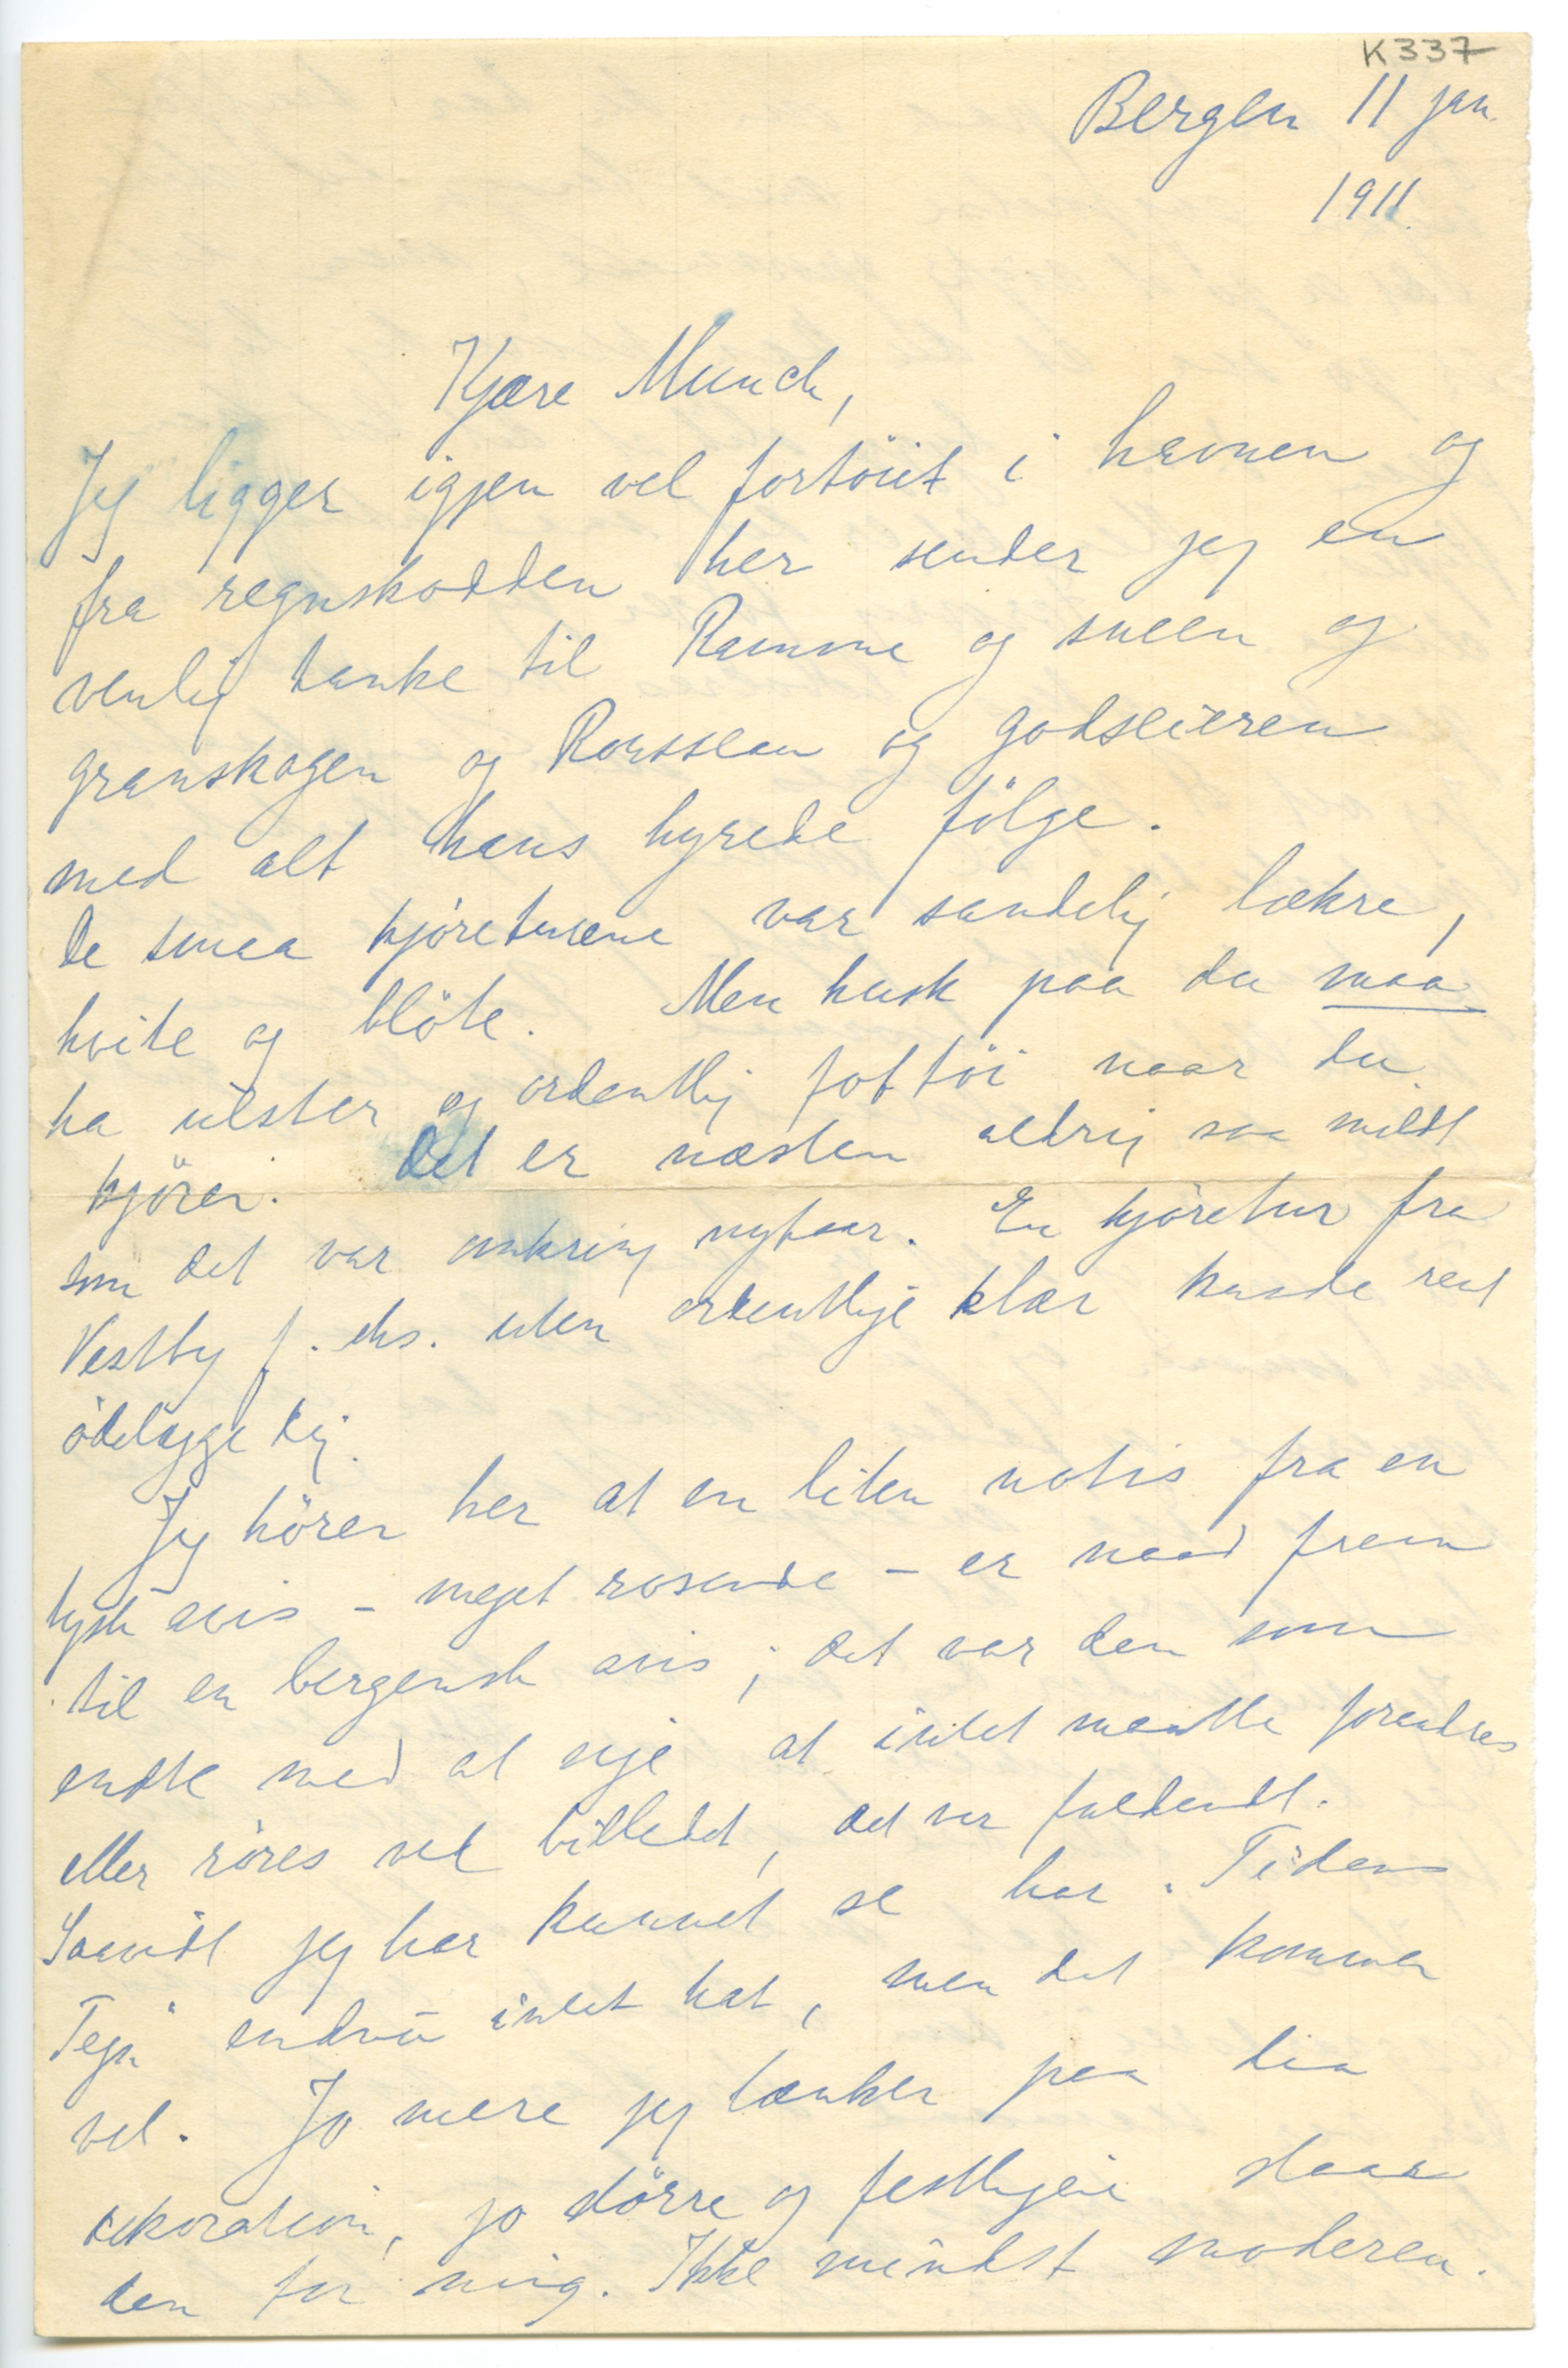 K337
Bergen 11 jan.
1911.
Kjære Munch,
Jeg ligger igjen vel fortöiet i havnen og
fra regnskodden her sender jeg en
venlig tanke til Ramme og sneen og
granskogen og Rousseau og godseieren
med alt hans hyrede fölge.
De smaa kjöreturene var sandelig lækre,
hvite og blöte. Men husk paa du maa
ha ulster og ordentlig fottöi naar du
kjörer. Det er næsten aldrig saa mildt
som det var omkring nytaar. En kjöretur fra
Vestby f. eks. uten ordentlige klær kunde rent
ödelægge dig.
Jeg hörer her at en liten notis fra en
tysk avis – meget rosende – er naad frem
til en bergensk avis; det var den som
endte med at sige at intet maatte forandres
eller röres ved billedet, det var fuldendt.
Saavidt jeg har kunnet se har „Tidens
Tegn" endnu intet hat, men det kommer
vel. Jo mere jeg tænker paa din
dekoration, jo större og festligere staar
den for mig. Ikke mindst moderen.